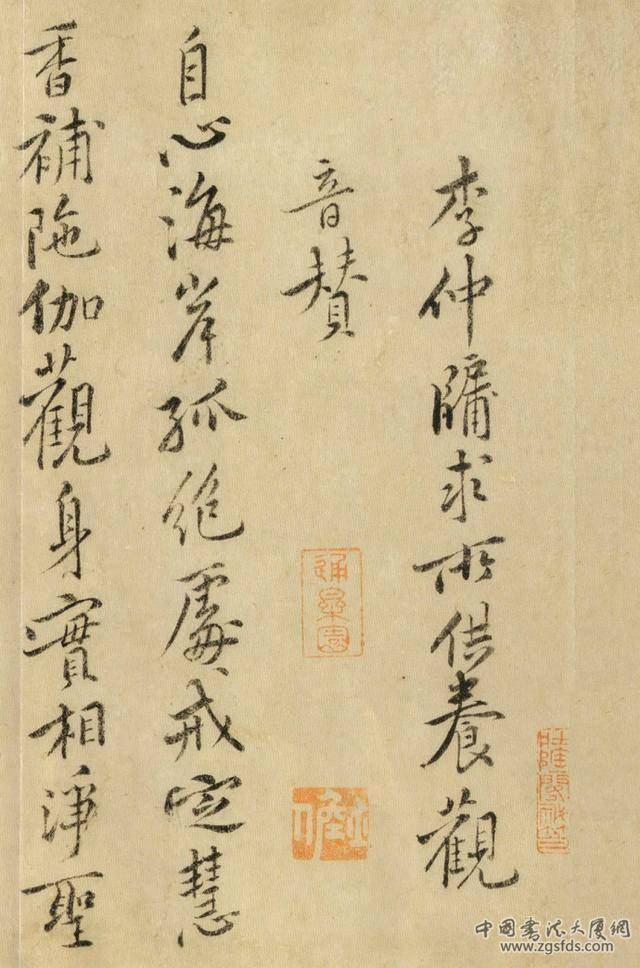 李仲牖求所供養觀
音賛
自心海岸孤絶處戒定慧
香補陁伽觀身實相淨聖
中国书法大厦网
www.zgsfds.com